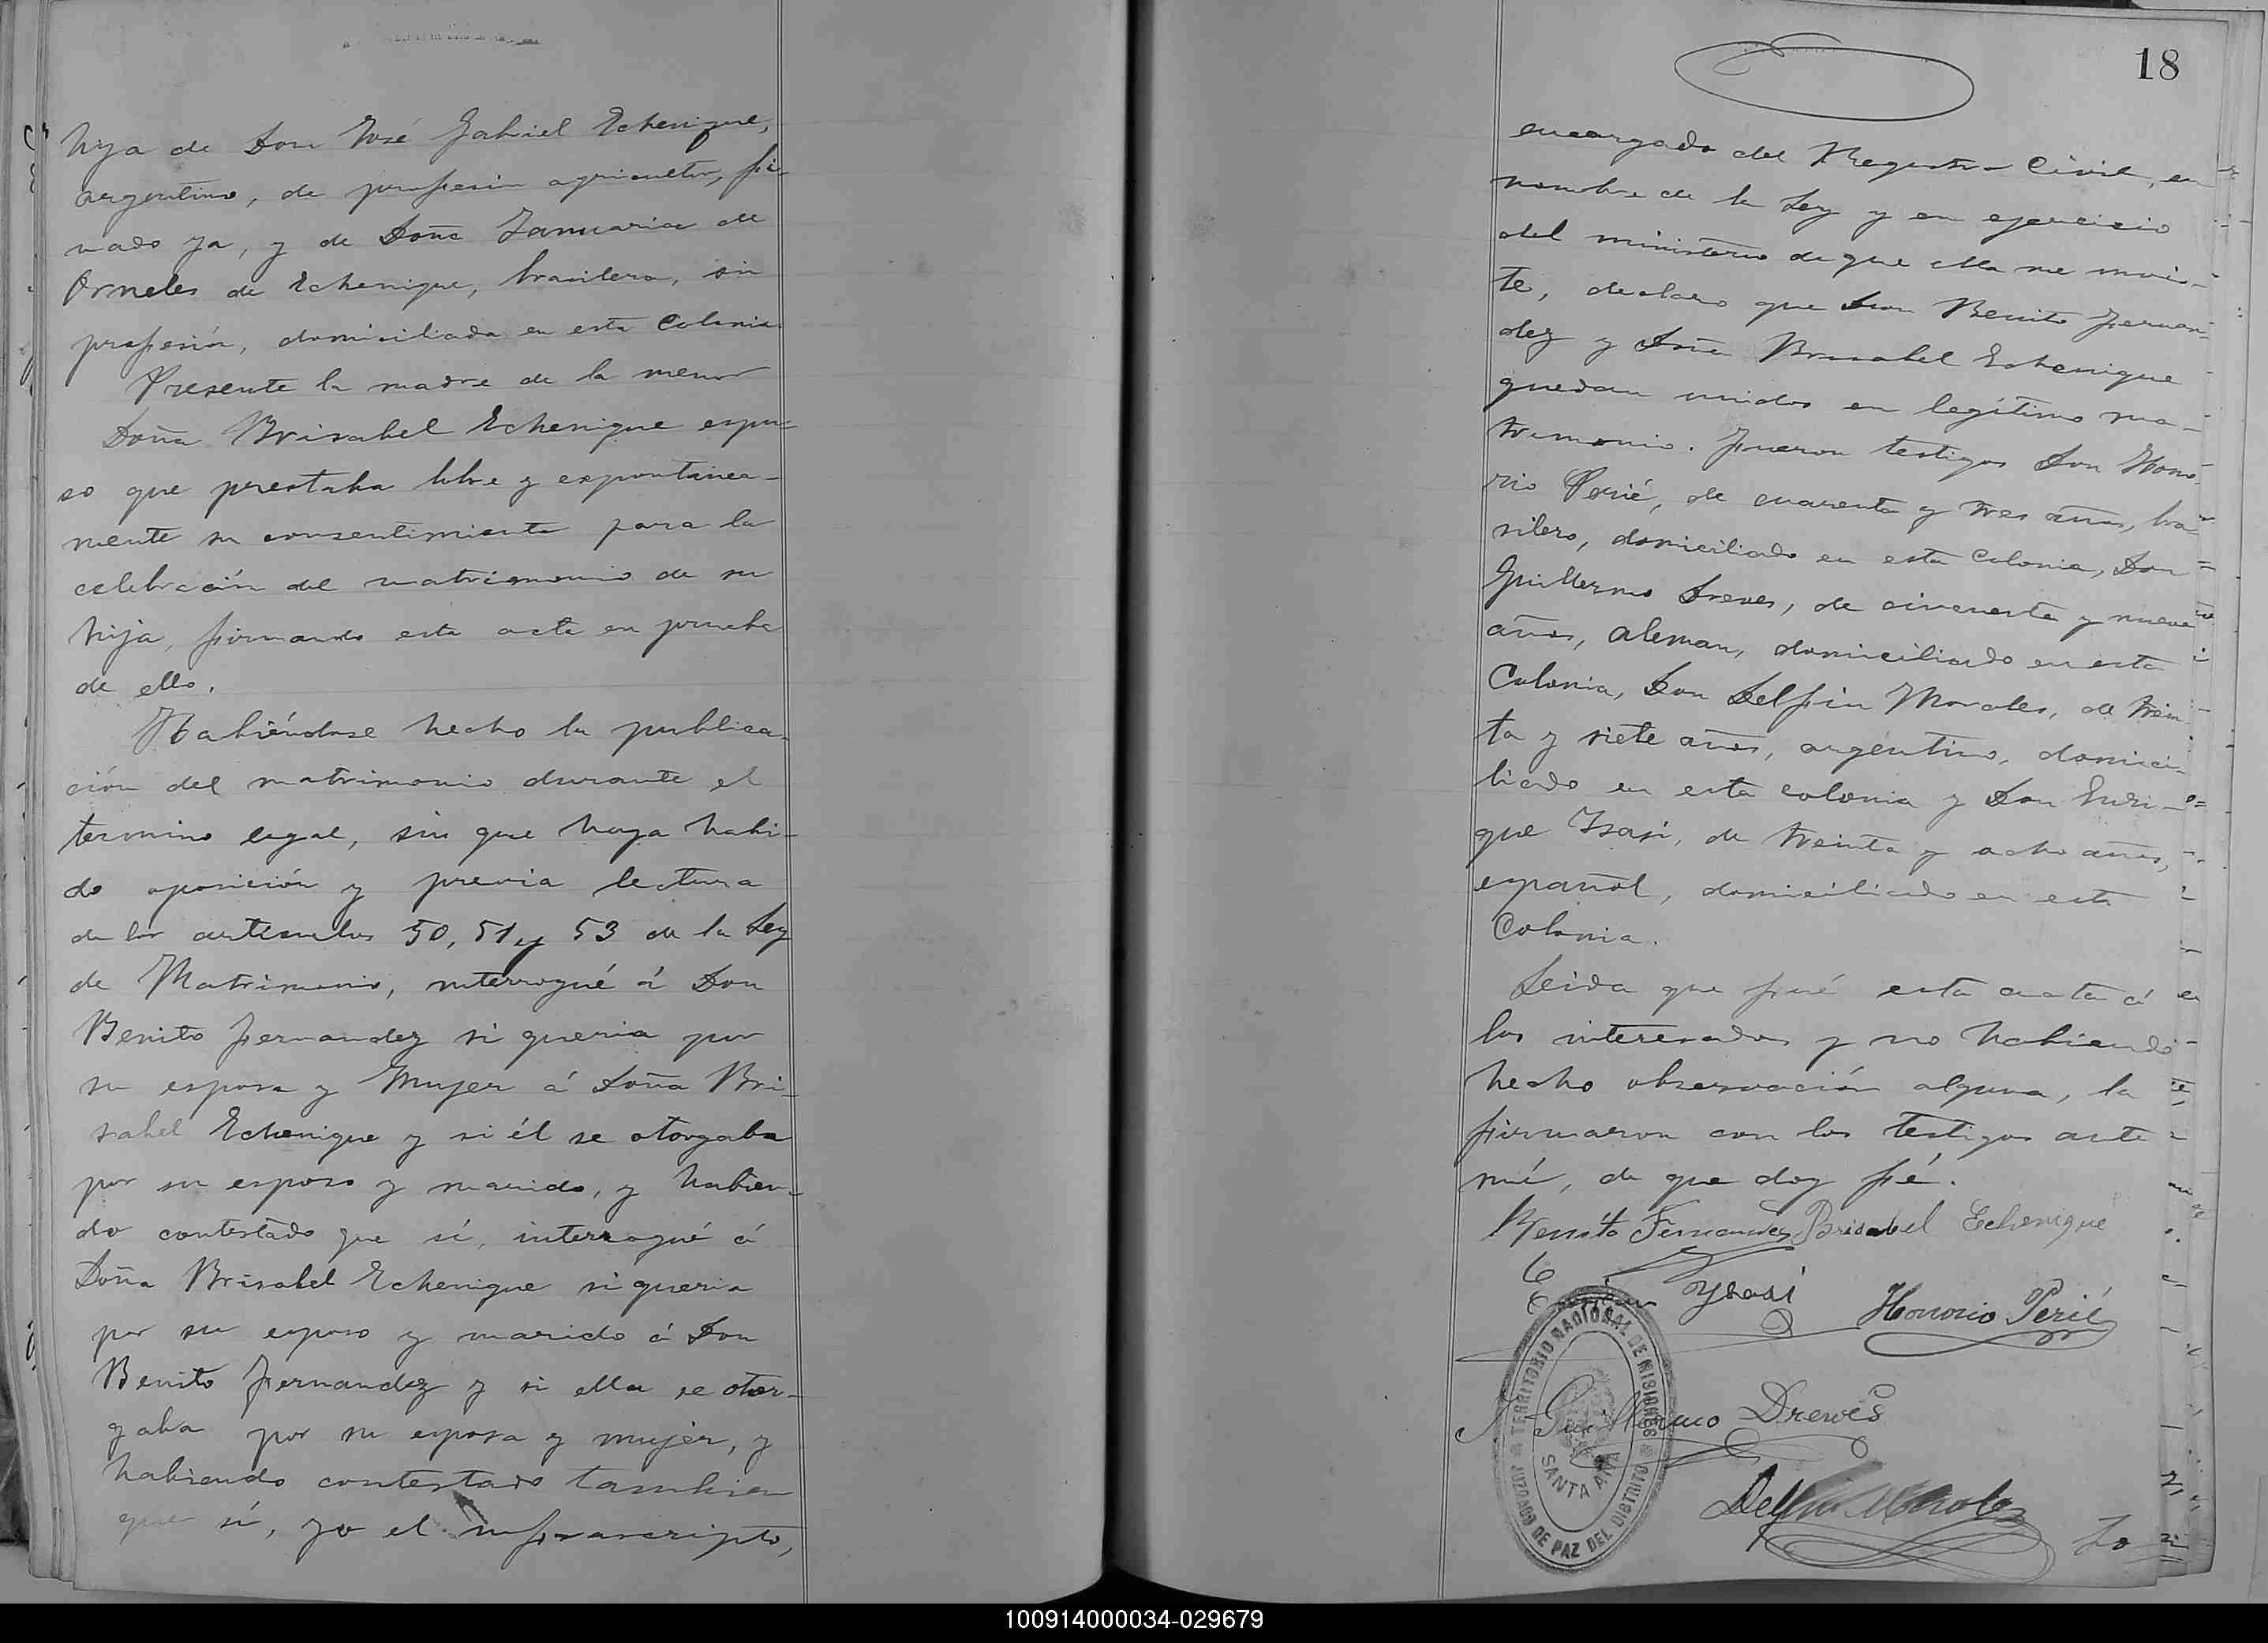 hija de Don José Gabriel Echenique,
argentino, de profesion agricultor, fi-
nado ya, y de Doña Januaria de
Orneles de Echenique, brasilera, sin
profesión, domiciliada en esta Colonia
Presente la madre de la menor
Doña Brisabel Echenique espu-
so que prestaba libre y espontanea-
mente su consentimiento para la
celebración del matrimonio de su
hija, firmando esta acta en prueba
de ello.
Habiéndose hecho la publica-
ción del matrimonio durante el
termino legal, sin que haya habi-
do oposición y previa lectura
de los articulos 50, 51 y 53 de la Ley
de Matrimonio, interrogué á Don
Benito Fernandez si queria por
su esposa y Mujer á Doña Bri-
sabel Echenique y si él se otorgaba
por su esposo y marido, y habien-
do contestado que sí, interrogué á
Doña Brisabel Echenique si queria
por su esposo y marido á Don
Benito Fernandez y si ella se otor-
gaba por su esposa y mujer, y
habiendo contestado tambien
que sí, yo el infrascripto,
18
encargado del Registro Civil, en
nombre de la Ley y en ejercicio
del ministerio de que ella me invis-
te, declaro que Don Benito Fernan-
dez y Doña Brisabel Echenique
quedan unidos en legítimo ma-
trimonio. Fueron testigos Don Hono-
rio Perié, de cuarenta y tres años, bra-
silero, domiciliado en esta Colonia, Don
Guillermo Dreves, de cincuenta y nueve
años, aleman, domiciliado en esta
Colonia, Don Delfin Morales, de trein-
ta y siete años, argentino, domici-
liado en esta colonia y Don Enri-
que Isasi, de treinta y ocho años,
español, domiciliado en esta
Colonia.
Leida que fué esta acta á
los interesados y no habiendo
hecho observación alguna, la
firmaron con los testigos ante
mí, de que doy fé.
Benito Fernandez Brisabel Echenique
Ysasi
Honorio Perié
TERRITORIO NACIONAL DE MISIONES
SANTA ANA
JUZGADO DE PAZ DEL DISTRITO
Guillermo Drewes
Delfin Morales
100914000034-029679